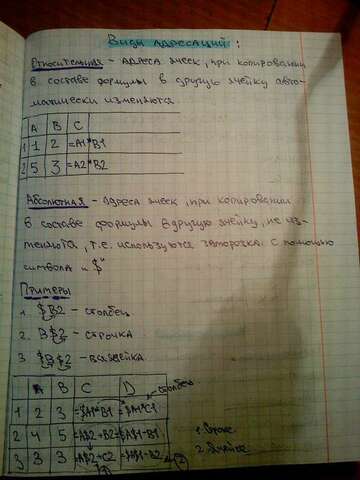 Виды адресаций:
Относительная - адреса ячеек, при копировании
в составе формулы в другую ячейку авто-
матически изменяются
A B C
1 1 2 =A1*B1
2 5 3 =A2*B2
Абсолютная - адреса ячеек, при копировании
в составе формулы в другую ячейку, не из-
меняются, т.е. используются заморозка с помощью
символа „$"
Примеры
1. $B2 - столбец
2. B$2 - строчка
3 $B$2 - вся ячейка
A B C D столбец
1 2 3 =$A1*B1 =$A1*C1
2 4 5
3 3 3
1.
2.